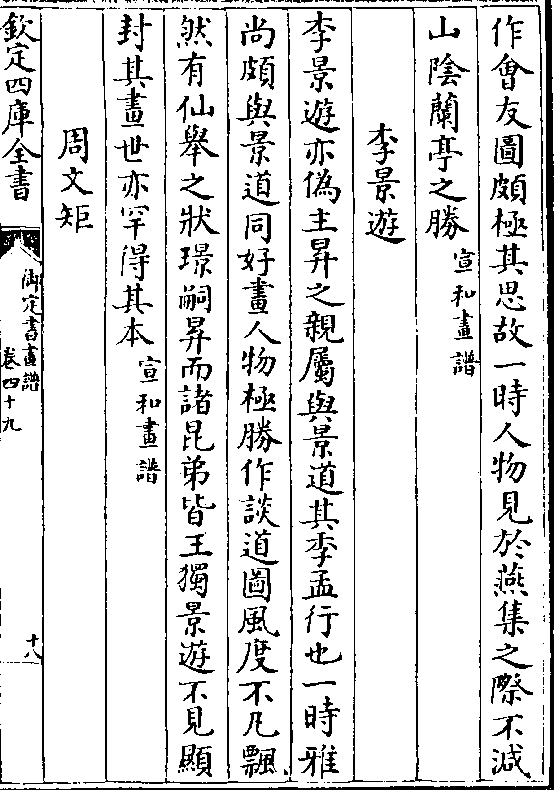 作會友圖頗極其思故一時人物見於燕集之際不減
山陰蘭亭之勝宣和畫譜
李景遊
李景遊亦偽主昇之親屬與景道其季孟行也一時雅
尚頗與景道同好畫人物極勝作談道圖風度不凡飄
然有仙舉之狀璟嗣昇而諸昆弟皆王獨景遊不見顯
封其畫世亦罕得其本宣和畫譜
周文矩
欽定四庫全書
御定書畫譜
卷四十九
十八